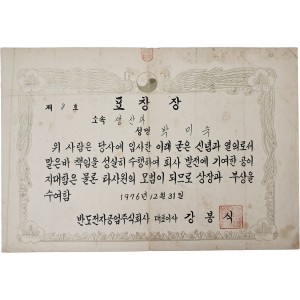 제 8 호
표창장
소속 생산과
성명 박미숙
위 사람은 당사에 입사한 이래 굳은 신념과 열의로서
맡은바 책임을 성실히 수행하여 회사 발전에 기여한 공이
지대함은 물론 타사원의 모범이 되므로 상장과 부상을
수여함
1976년 12월 31일
반도전자공업주식회사 대표이사 강봉식